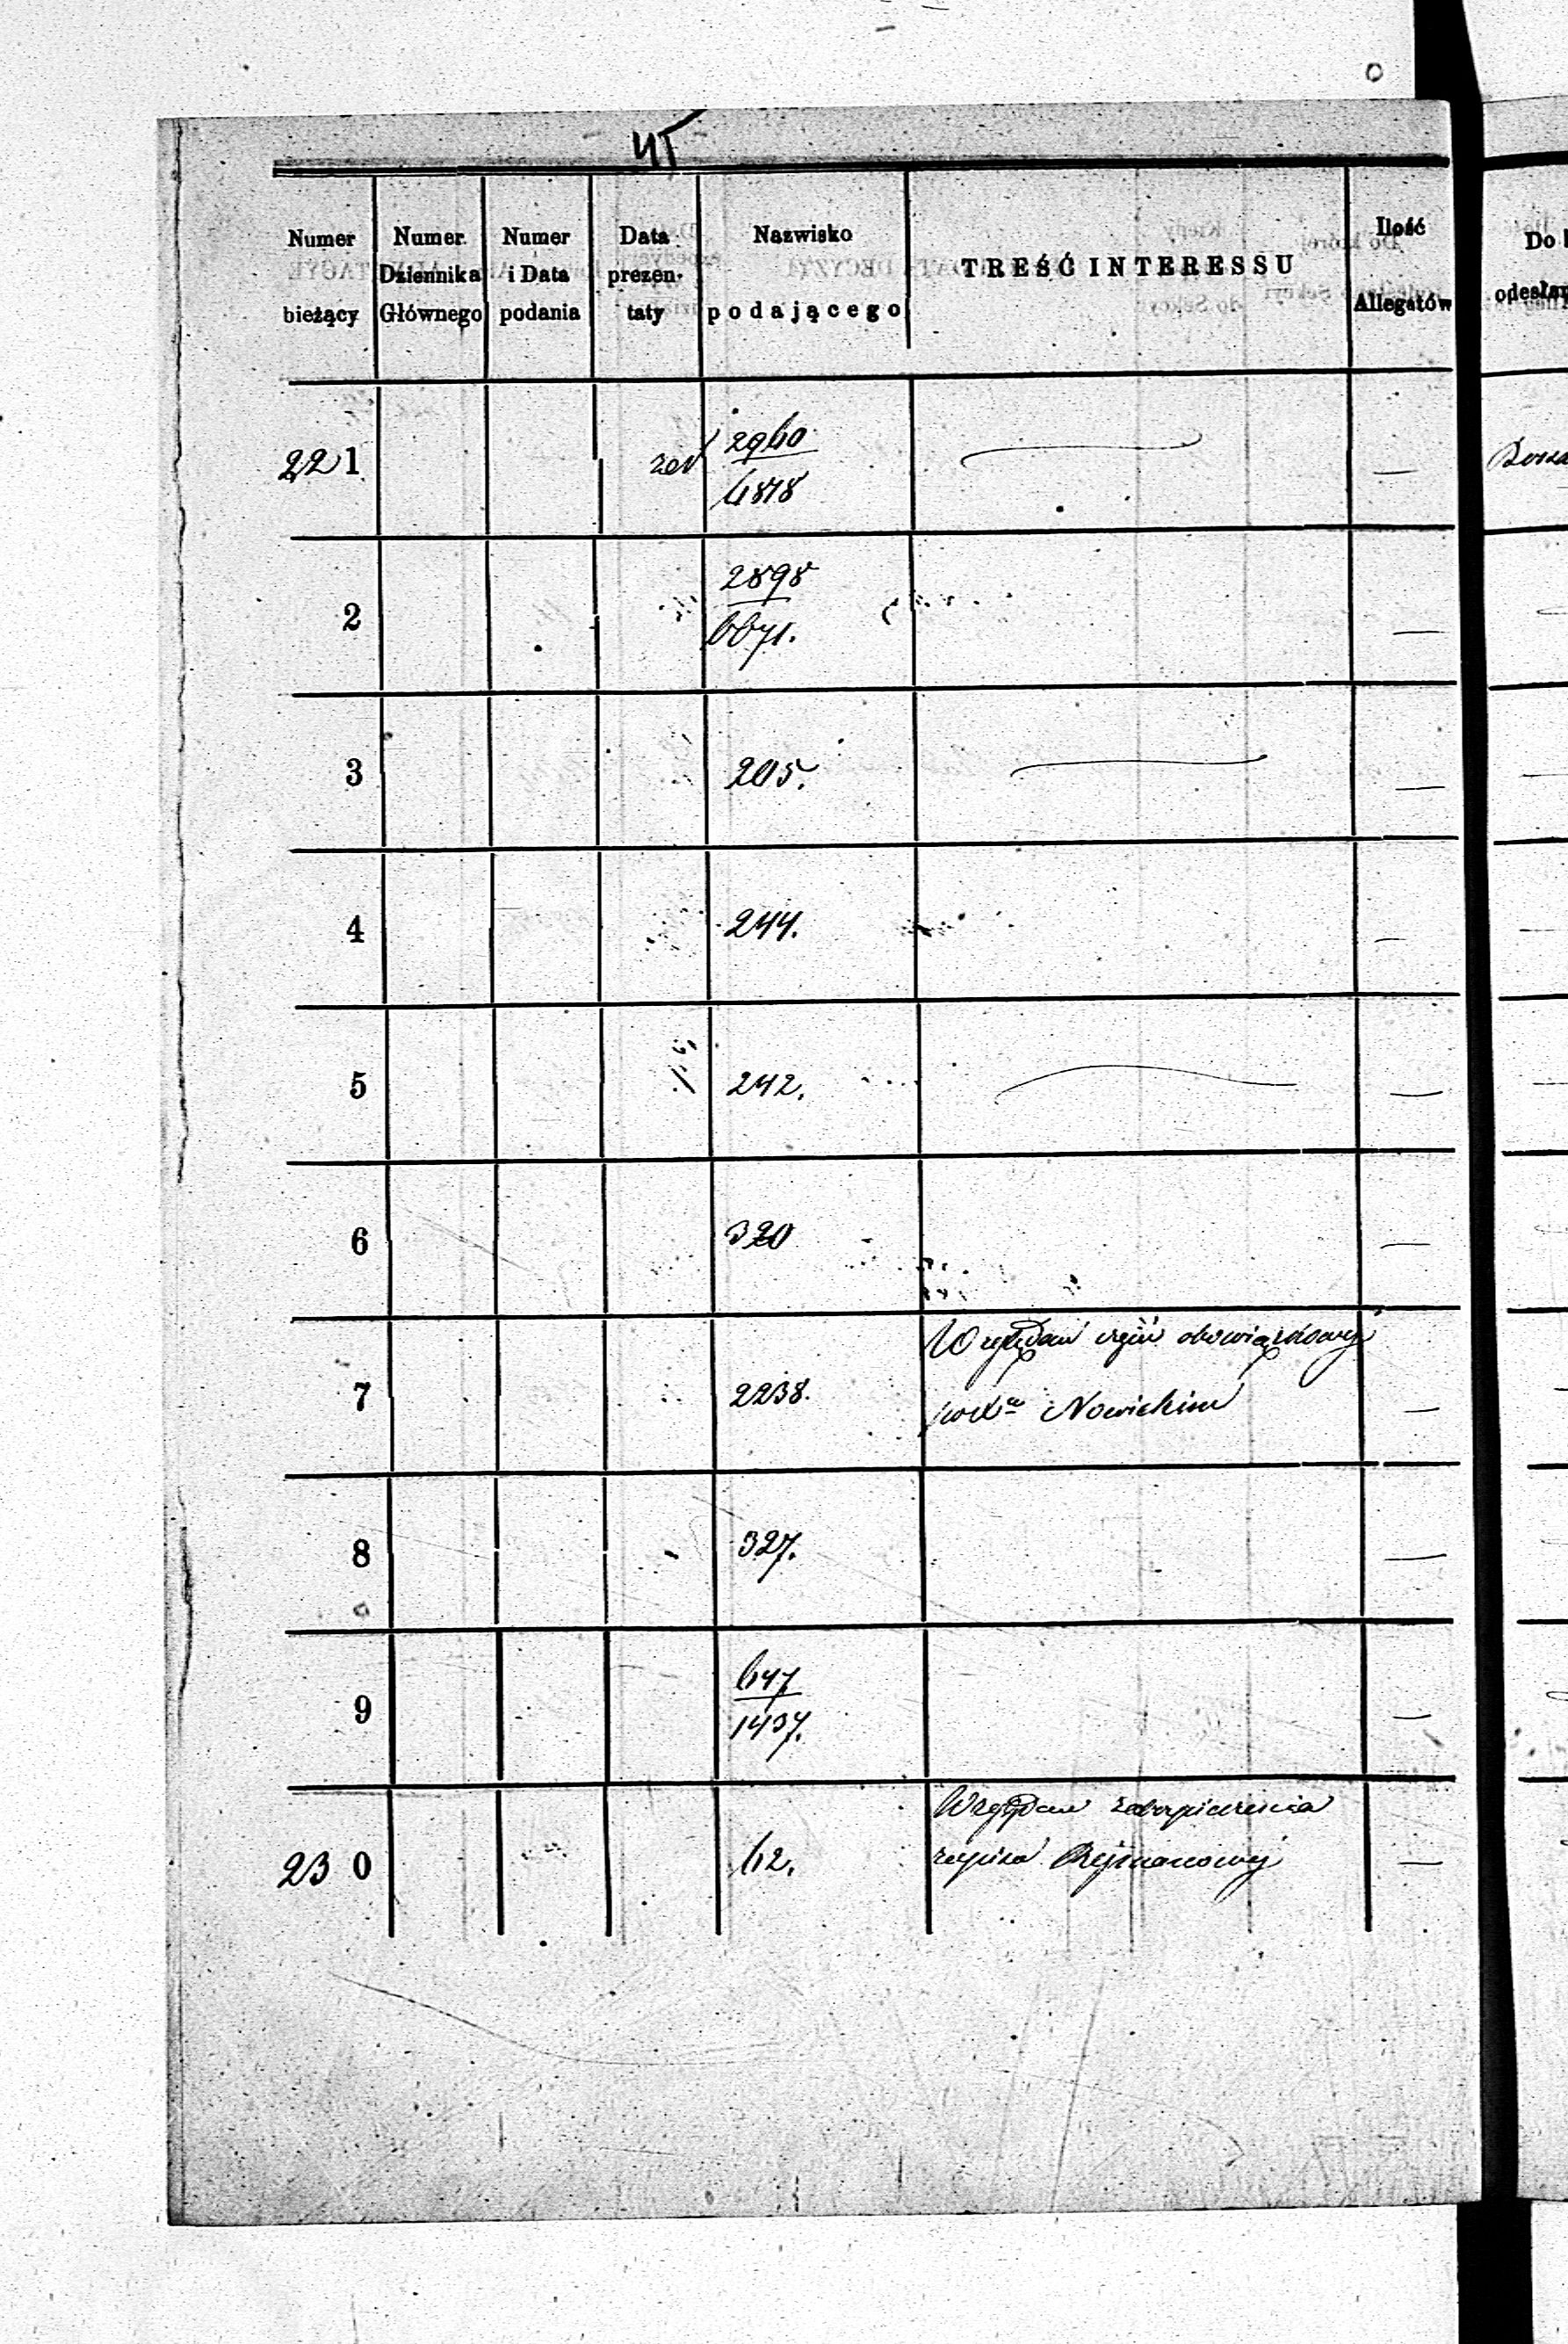 45
Numer bieżący
Numer Dziennika Głównego
Numer i Data podania
Data prezentaty
Nazwisko podającego
TREŚĆ INTERESSU
Ilość Allegatów
221 2960
4878
2 2898
6671.
3 205.
4 244.
5 242.
6 320
7 2238. Względem części obowiązkowej
Nowickim
8 327.
9 647
1437.
230 62. Względem zabezpieczenia
zapisu Rejmanowej